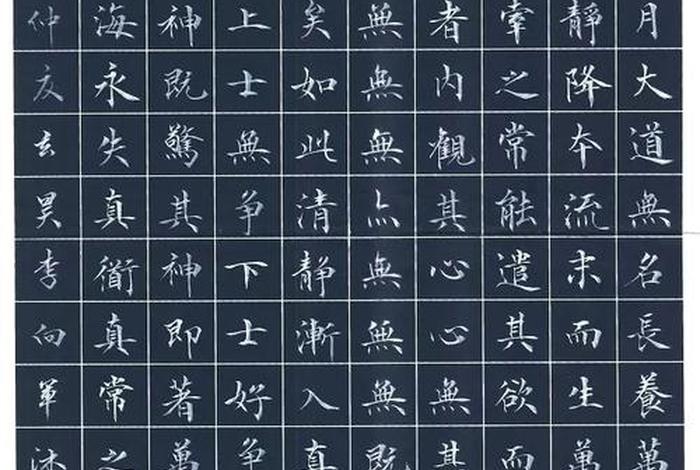 月大道無名長養萬
靜降本流末而生萬
牽之常能遣其欲而
者內觀其心心無其
無無無亦無無無既
矣如此清靜漸入真
上士無爭下士好爭
神既驚其神即著萬
海永失真衜真常之
仲玄昊李向軍沐